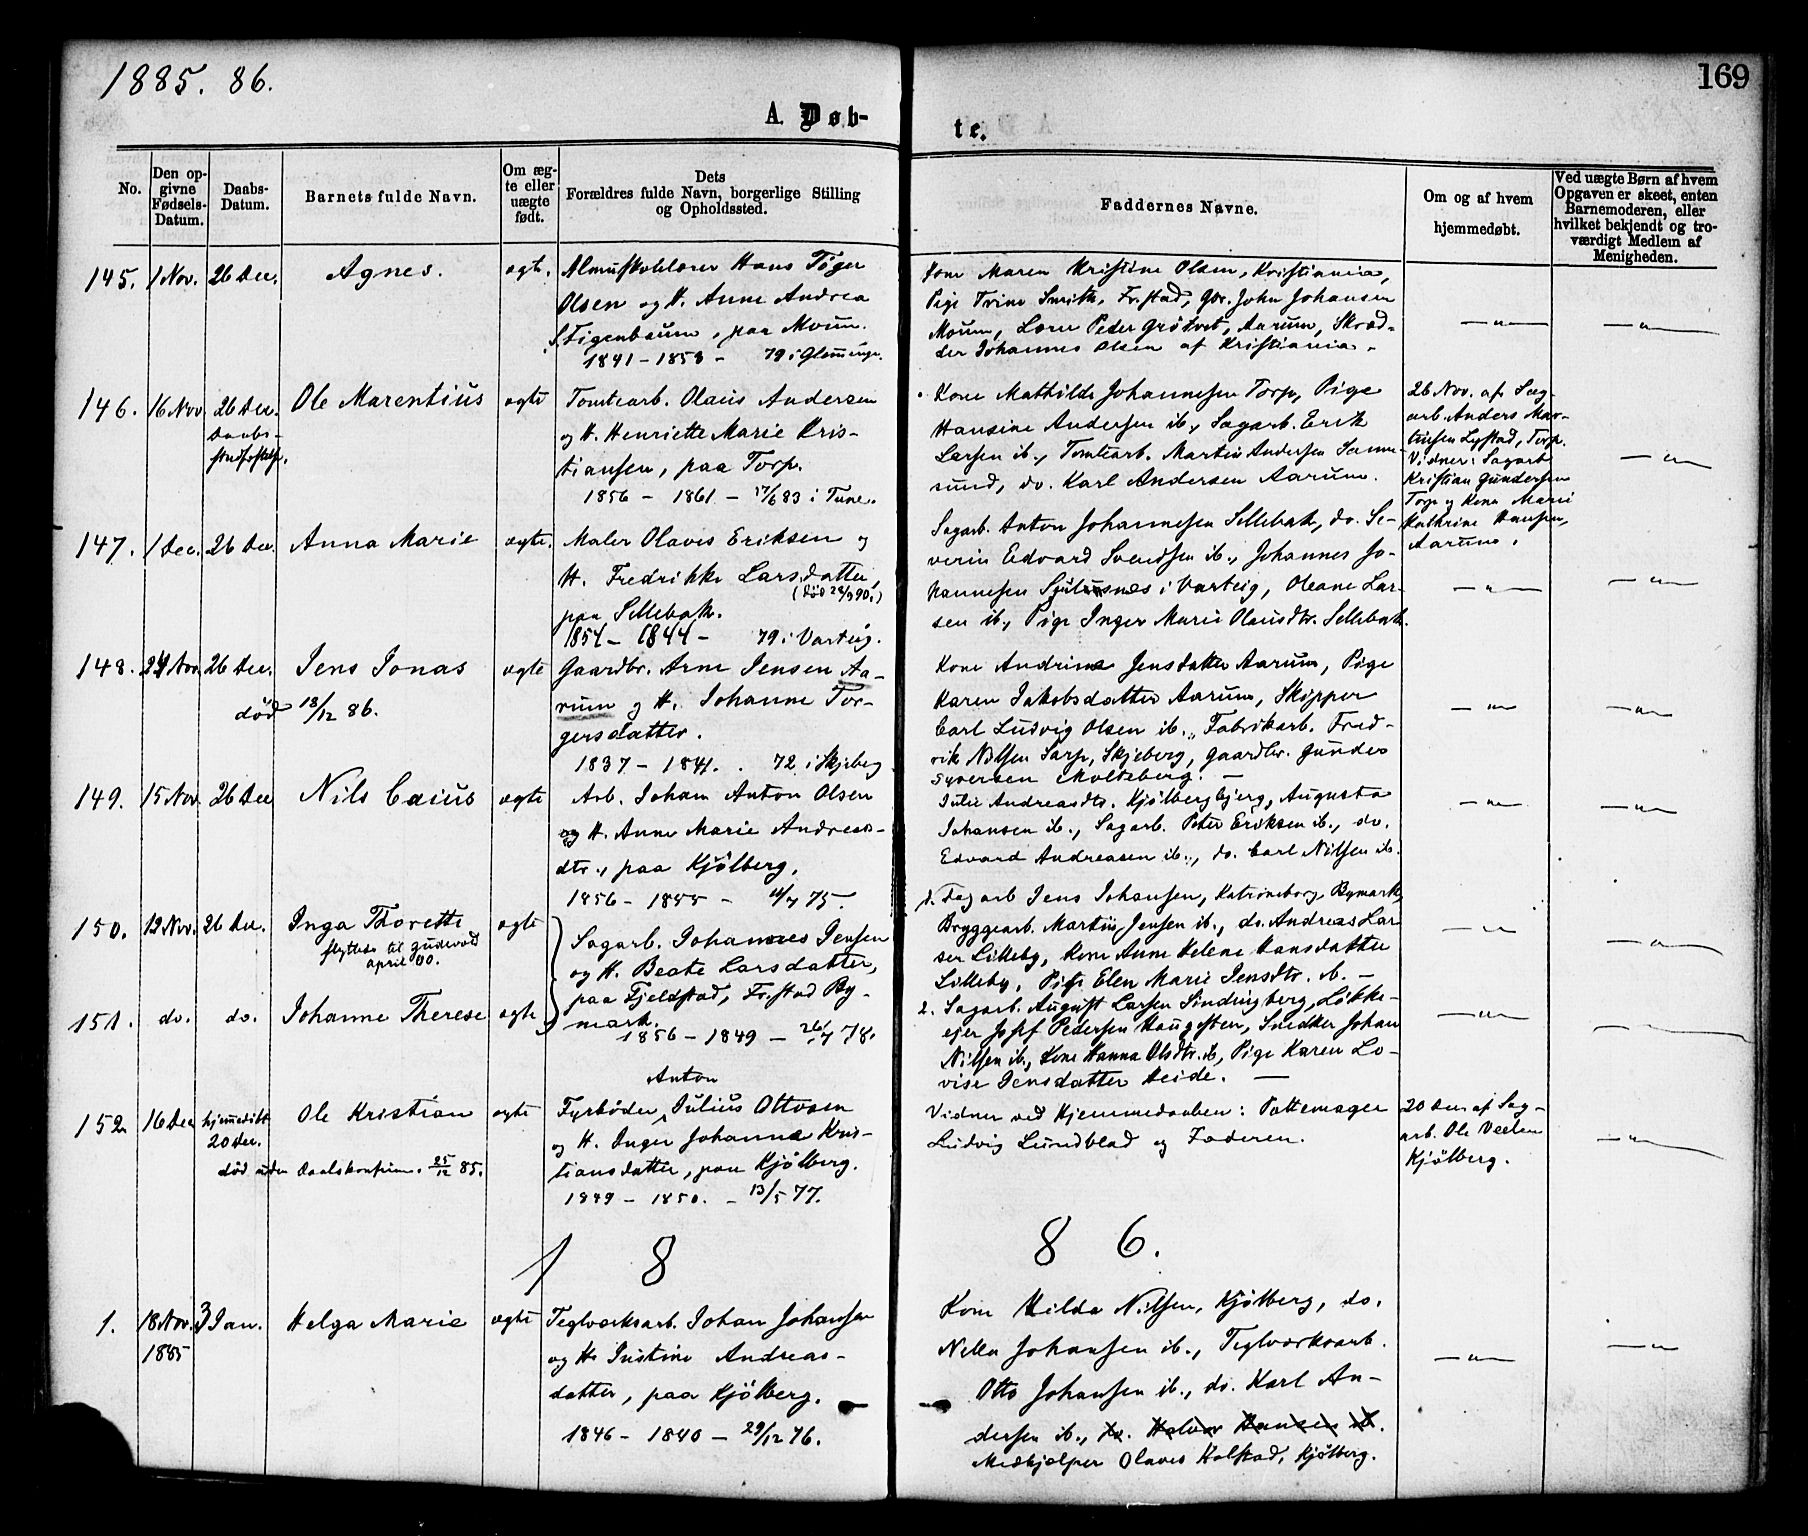 1885. 86.
169
A. Døb-
te.
No.
Den op-
givne
Fødsels-
Datum.
Daabs-
Datum.
Barnets fulde Navn.
Om æg-
te eller
uægte
født.
Dets
Forældres fulde Navn, borgerlige Stilling
og Opholdssted.
Faddernes Navne.
Om og af hvem
hjemmedøbt.
Ved uægte Børn af hvem
Opgaven er skeet, enten
Barnemoderen, eller
hvilket bekjendt og tro-
værdigt Medlem af
Menigheden.
145. 1 Nov. 26 Dec. Agnes. ægte.
Almuskolelærer Hans Tøger
Olsen og H. Anne Andrea
Figenbaum, paa Moum.
1841 - 1853 - 79 i Glemminge.
Kone Maren Kristine Olsen, Kristiania,
Pige Trine Smith, Fr.stad, Gbr. John Johansen
Moum, Lærer Peder Grøtvet, Aarum, Skræd-
der Johannes Olsen af Kristiania.
— " —
— " —
146. 16 Nov. 26 Dec. Ole Marentius ægte
Daabs-
stadfæstelse.
Tomtearb. Olaus Andersen
og H. Henriette Marie Kris-
tiansen, paa Torp.
1856 - 1861 - 17/6 83 i Tune.
Kone Mathilde Johannesen Torp, Pige
Hansine Andersen ib., Sagarb. Erik
Larsen ib., Tomtearb. Martin Andersen Sanne-
sund, do. Karl Andersen Aarum.
26 Nov. af Sag-
arb. Anders Mar-
tinsen Lystad, Torp.
Vidner: Sagarb
Kristian Gundersen
Torp og Kone Marie
Kathrine Hansen,
Aarum.
— " —
147. 1 Dec. 26 Dec. Anna Marie ægte.
Maler Olaves Eriksen og
H. Fredrikke Larsdatter,
(død 28/9 90.)
paa Sellebak.
1854 - 1844 - 79 i Varteig.
Sagarb. Anton Johannesen Sellebak, do. Se-
verin Edvard Svendsen ib., Johannes Jo-
hannesen i Varteig, Oleane Lar-
sen ib., Pige Inger Marie Olausdtr. Sellebak.
— " —
— " —
148. 24 Nov. 26 Dec. Jens Jonas ægte
død 13/12 86.
Gaardbr. Arne Jensen Aa-
rum og H. Johanne Tor-
gersdatter.
1837 - 1841. 72 i Skjeberg
Kone Andrine Jensdatter Aarum, Pige
Karen Jakobsdatter Aarum, Skipper
Carl Ludvig Olsen ib., Fabrikarb. Fred-
rik Nilsen Sarp, Skjeberg, Gaardbr. Gunder
Syversen Moldeberg. —
— " —
— " —
149. 15 Nov. 26 Dec Nils Caius ægte
Arb. Johan Anton Olsen
og H. Anne Marie Andreas-
dtr., paa Kjølberg.
1856 - 1855 - 4/7 75.
Julie Andreasdtr. Kjølbergbjerg, Augusta
Johansen ib., Sagarb. Peter Eriksen ib., do.
Edvard Andreasen ib., do. Carl Nilsen ib.
— " —
— " —
150. 12 Nov. 26 Dec. Inga Thorette ægte
flyttede til Gudevold
april 00.
Sagarb. Johannes Jensen
og H. Beate Larsdatter,
paa Fjeldstad, Fr.stad By-
mark.
1856 - 1849 - 26/7 78.
1. Sagarb Jens Johansen, Katrineborg Bymark,
Bryggearb. Martin Jensen ib., do. Andreas Lar-
sen Lilleby, Kone Anne Helene Hansdatter
Lilleby, Pige Elen Marie Jensdtr. ib. —
— " —
— " —
151. do. do. Johanne Therese ægte
2. Sagarb. August Larsen Sindingberg, Løkke-
eier Josef Pedersen Haugesten, Snedker Johan
Nilsen ib., Kone Hanna Olsdtr. ib, Pige Karen Lo-
vise Jensdatter Heide. —
— " —
— " —
152. 16 Dec hjemmedøbt Ole Kristian ægte
20 Dec.
død uden Daabskonfirm. 25/12 85.
Anton
Fyrbøder Julius Ottosen
og H. Inger Johanne Kris-
tiansdatter, paa Kjølberg.
1849 - 1850. - 13/5 77.
Vidner ved Hjemmedaaben: Pottemager
Ludvig Lundblad og Faderen.
20 Dec. af Sag-
arb. Ole Veelen
Kjølberg.
— " —
1 8 8 6.
1. 18 Nov. 3 Jan. Helga Marie ægte
1885
Teglværksarb. Johan Johansen
og H. Justine Andreas-
datter, paa Kjølberg.
1846 - 1840 - 29/12 76.
Kone Hilda Nilsen, Kjølberg, do.
Nella Johansen ib., Teglværksarb.
Otto Johansen ib., do. Karl An-
dersen ib., do. Halvor Hansen ib.
Medhjælper Olaves Holstad, Kjølberg.
— " —
— " —